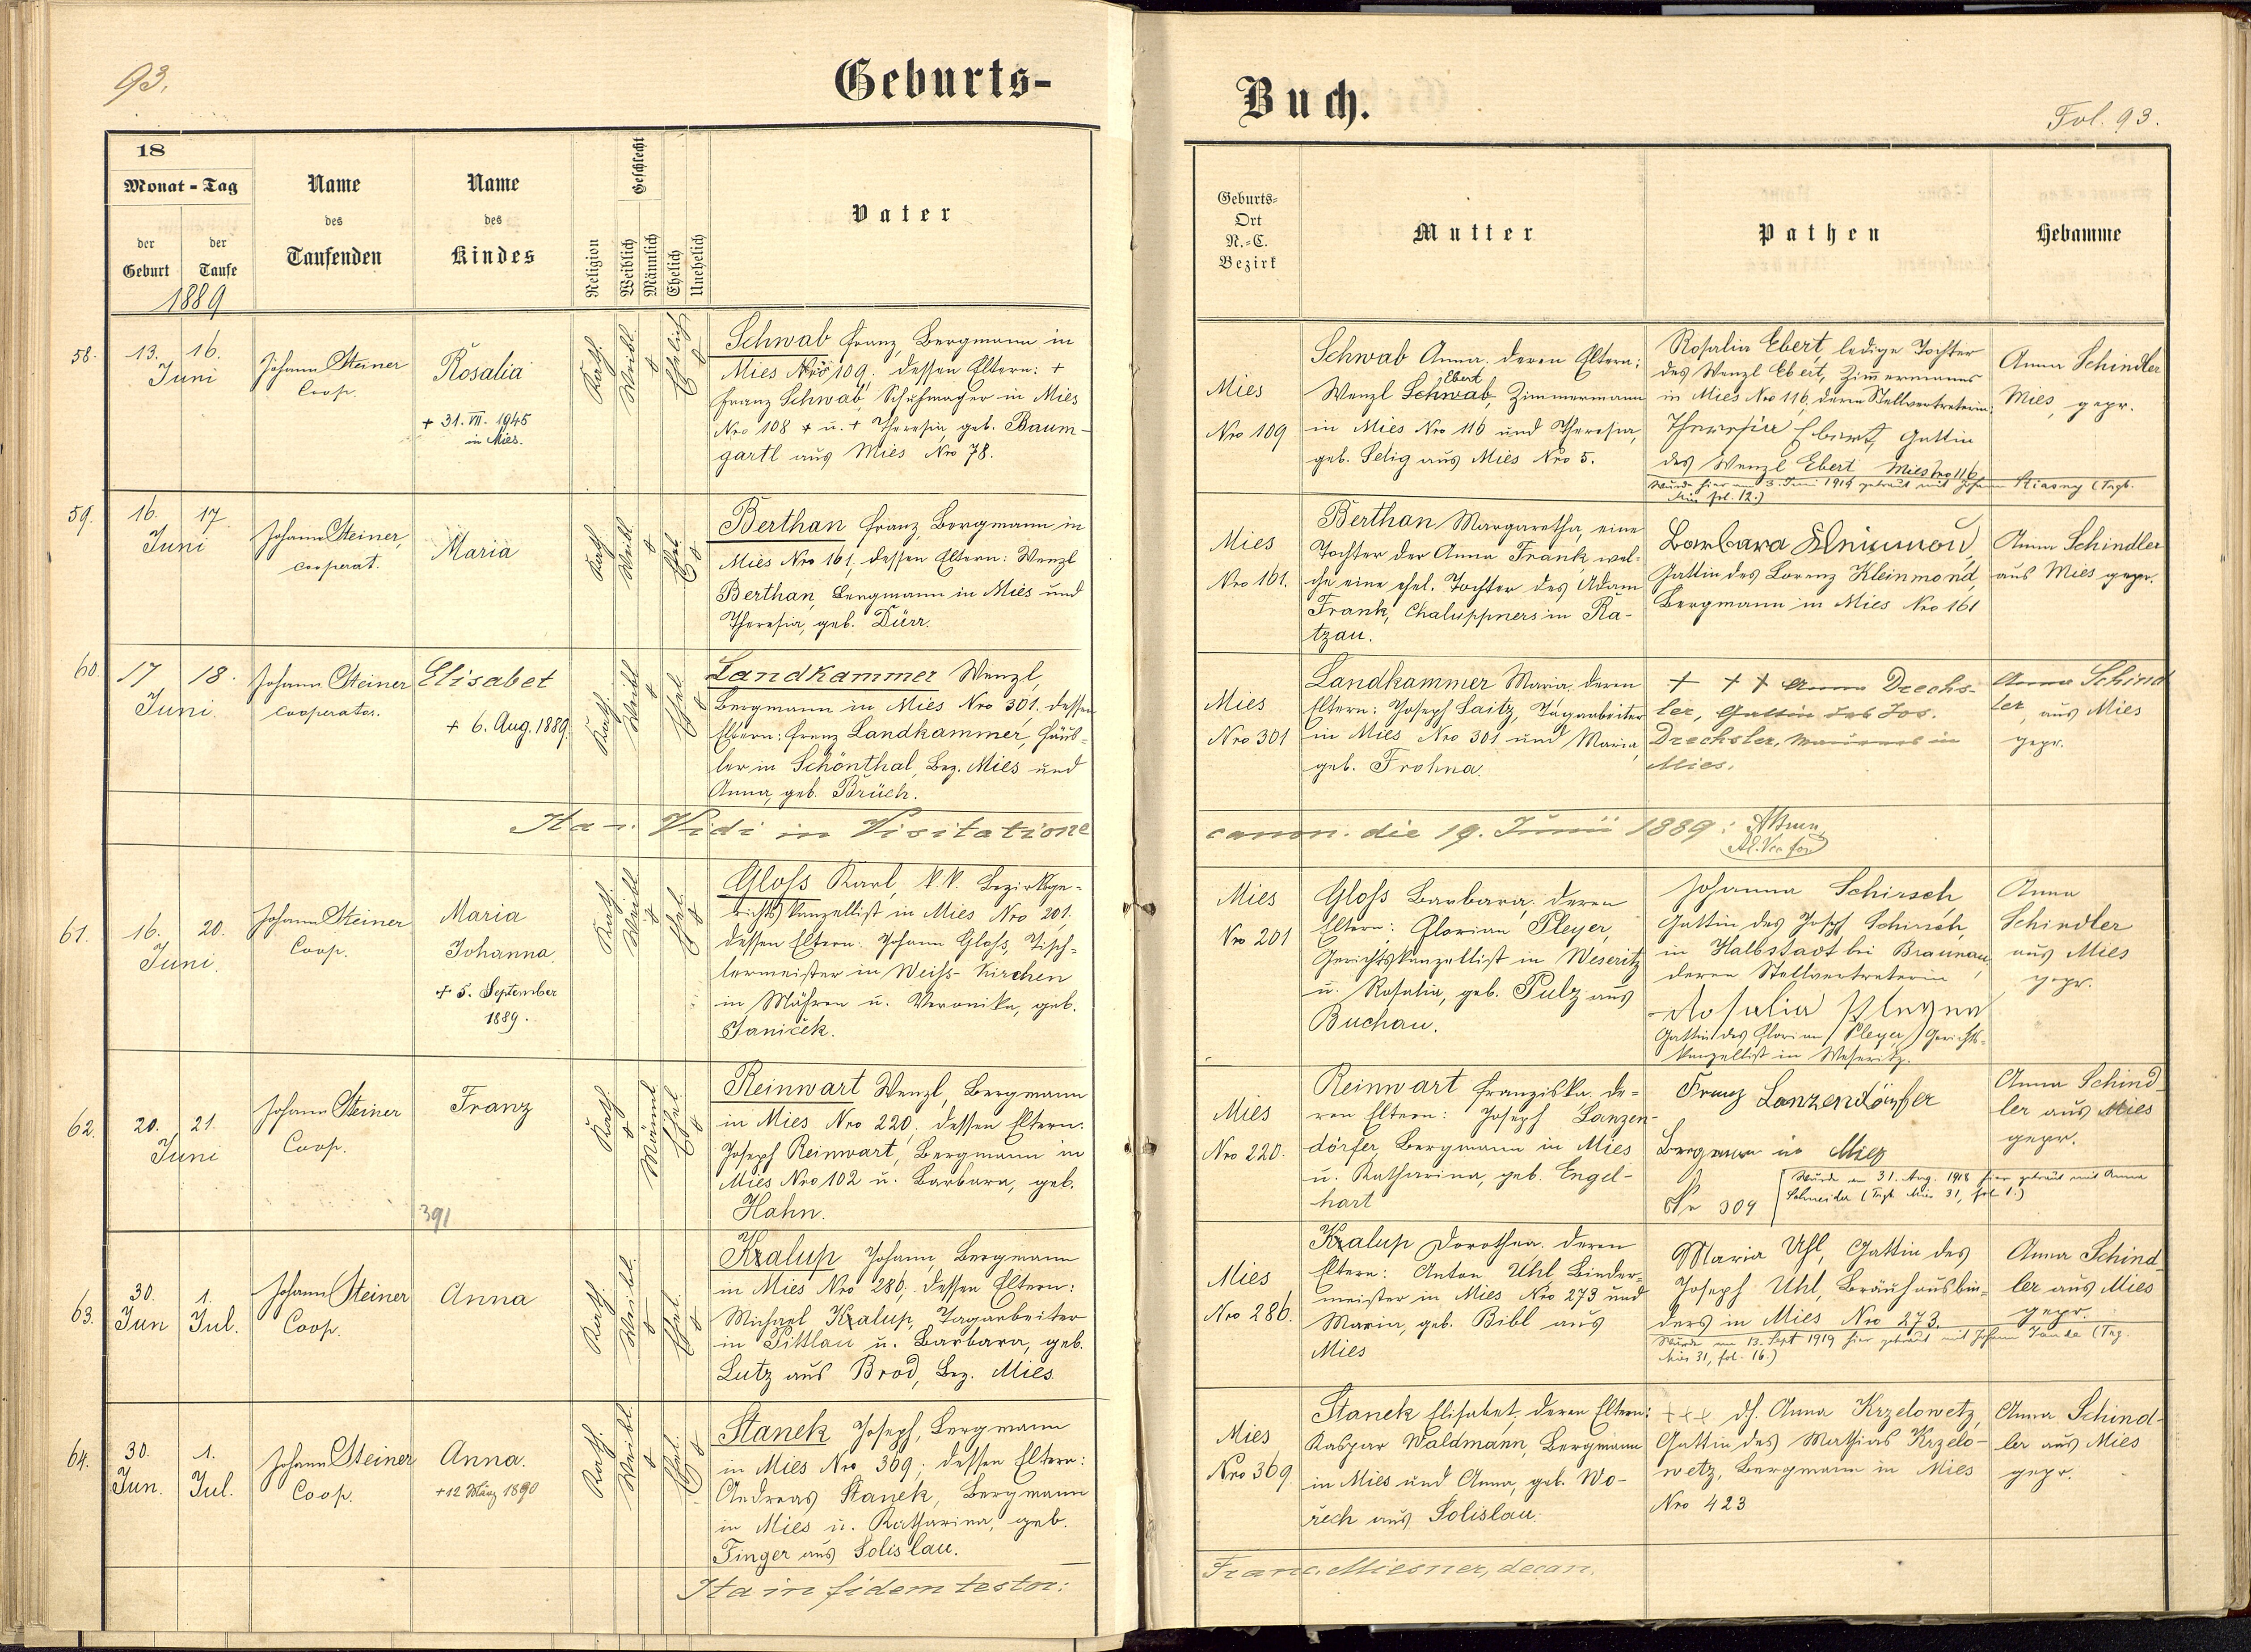 93.
Geburts-
18
Monat - Tag
der Geburt
der Taufe
1889
Name des Taufenden
Name des Kindes
Religion
Geschlecht
Weiblich
Männlich
Ehelich
Unehelich
Vater
58.
13. 16.
Juni
Johann Steiner
Coop.
Rosalia
+ 31. VII. 1945
in Mies.
Kath.
Weibl.
Ehelich
Schwab Franz, Bergmann in
Mies Nro 109. dessen Eltern: +
Franz Schwab, Schuhmacher in Mies
Nro 108 + u. + Theresia, geb. Baum-
gartl aus Mies Nro 78.
59.
16. 17.
Juni
Johann Steiner,
Cooperat.
Maria
Kath.
Weibl.
Ehel.
Berthan Franz, Bergmann in
Mies Nro 161, dessen Eltern: Wenzl
Berthan, Bergmann in Mies und
Theresia, geb. Dürr.
60.
17 18.
Juni
Johann Steiner
Cooperator.
Elisabet
+ 6. Aug. 1889.
Kath.
Weibl.
Ehel.
Landkammer Wenzl,
Bergmann in Mies Nro 301. dessen
Eltern: Franz Landkammer, Häus-
ler in Schönthal, Bez. Mies und
Anna, geb. Brüch.
Vidi in Visitatione
61.
16. 20.
Juni.
Johann Steiner
Coop.
Maria
Johanna.
+ 5. September
1889.
Kath.
Weibl.
Ehel.
Gloss Karl, k.k. Bezirksge-
richtskanzellist in Mies Nro 201.
dessen Eltern: Johann Gloss, Tisch-
lermeister in Weiss-Kirchen
in Mähren u. Veronika, geb.
Janiček.
62.
20. 21.
Juni
Johann Steiner
Coop.
Franz
391
Kath.
Männl.
Ehel.
Reinwart Wenzl, Bergmann
in Mies Nro 220. dessen Eltern.
Joseph Reinwart, Bergmann in
Mies Nro 102 u. Barbara, geb.
Hahn.
63.
30. 1.
Jun Jul.
Johann Steiner
Coop.
Anna
Kath.
Weibl.
Ehel.
Kralup Johann, Bergmann
in Mies Nro 286. dessen Eltern:
Michael Kralup, Tagarbeiter
in Pittlau u. Barbara, geb.
Lutz aus Brod, Bez. Mies.
64.
30. 1.
Jun. Jul.
Johann Steiner
Coop.
Anna.
+ 12 März 1890
Kath.
Weibl.
Ehel.
Stanek Joseph, Bergmann
in Mies Nro 369; dessen Eltern:
Andreas Stanek, Bergmann
in Mies u. Katharina, geb.
Finger aus Solislau.
Ita in fidem testor:
Buch.
Fol. 93.
Geburts-
Ort
N.-C.
Bezirk
Mutter
Pathen
Hebamme
Mies
Nro 109
Schwab Anna. deren Eltern:
Ebert
Wenzl Schwab, Zimmermann
in Mies Nro 116 und Theresia,
geb. Selig aus Mies Nro 5.
Rosalia Ebert, ledige Tochter
des Wenzl Ebert, Zimmermanns
in Mies Nro 116, deren Stellvertreterin:
Theresia Ebert, Gattin
des Wenzl Ebert Mies Nro 116
Wurde hier am 3. Juni 1914 getraut mit Johann
fol. 12.)
Anna Schindler
Mies, gepr.
Mies
Nro 161.
Berthan Margaretha, eine
Tochter der Anna Frank, wel-
che eine ehel. Tochter des Adam
Frank, Chaluppners in Ra-
tzau.
Barbara
Gattin des Lorenz Kleinmond,
Bergmann in Mies Nro 161
Anna Schindler
aus Mies gepr.
Mies
Nro 301
Landkammer Maria. deren
Eltern: Joseph Saitz, Tagarbeiter
in Mies Nro 301 und Maria,
geb. Frohna.
+ + + Anna Drechs-
ler, Gattin des Jos.
Drechsler, Maurers in
Mies.
Anna Schind
ler, aus Mies
gepr.
canon. die 19. Junii 1889:
Mies
Nro 201
Gloss Barbara, deren
Eltern: Florian Pleyer,
Gerichtskanzellist in Weseritz
u. Rosalia, geb. Pulz aus
Buchau.
Johanna Schirsch
Gattin des Joseph Schirsch,
in Halbstadt bei Braunau,
deren Stellvertreterin
Rosalia Pleyer
Gattin des Florian Pleyer, Gerichts-
kanzellist in Weseritz.
Anna
Schindler
aus Mies
gepr.
Mies
Nro 220.
Reinwart Franziska. de-
ren Eltern: Joseph Lanzen-
dörfer, Bergmann in Mies
u. Katharina, geb. Engel-
hart
Franz Lanzendörfer
Bergmann in Mies
No 309
Wurde am 31. Aug. 1918 hier getraut mit Anna
Schneider (Mies 31, fol 1.)
Anna Schind-
ler aus Mies
gepr.
Mies
Nro 286.
Kralup Dorothea. deren
Eltern: Anton Uhl Binder-
meister in Mies Nro 273 und
Maria, geb. Bibl aus
Mies
Maria Uhl, Gattin des
Joseph Uhl, Bräuhausbin-
ders in Mies Nro 273.
Wurde am 13. Sept 1919 hier getraut mit Johann
Mies 31, fol. 16.)
Anna Schind-
ler aus Mies
gepr.
Mies
Nro 369.
Stanek Elisabet, deren Eltern:
Kaspar Waldmann, Bergmann
in Mies und Anna, geb. Wo-
rech aus Solislau.
+++ d.h. Anna Krzelowetz,
Gattin des Mathias Krzelo-
wetz, Bergmann in Mies
Nro 423
Anna Schind-
ler aus Mies
gepr.
Franc. Miesner, decan.